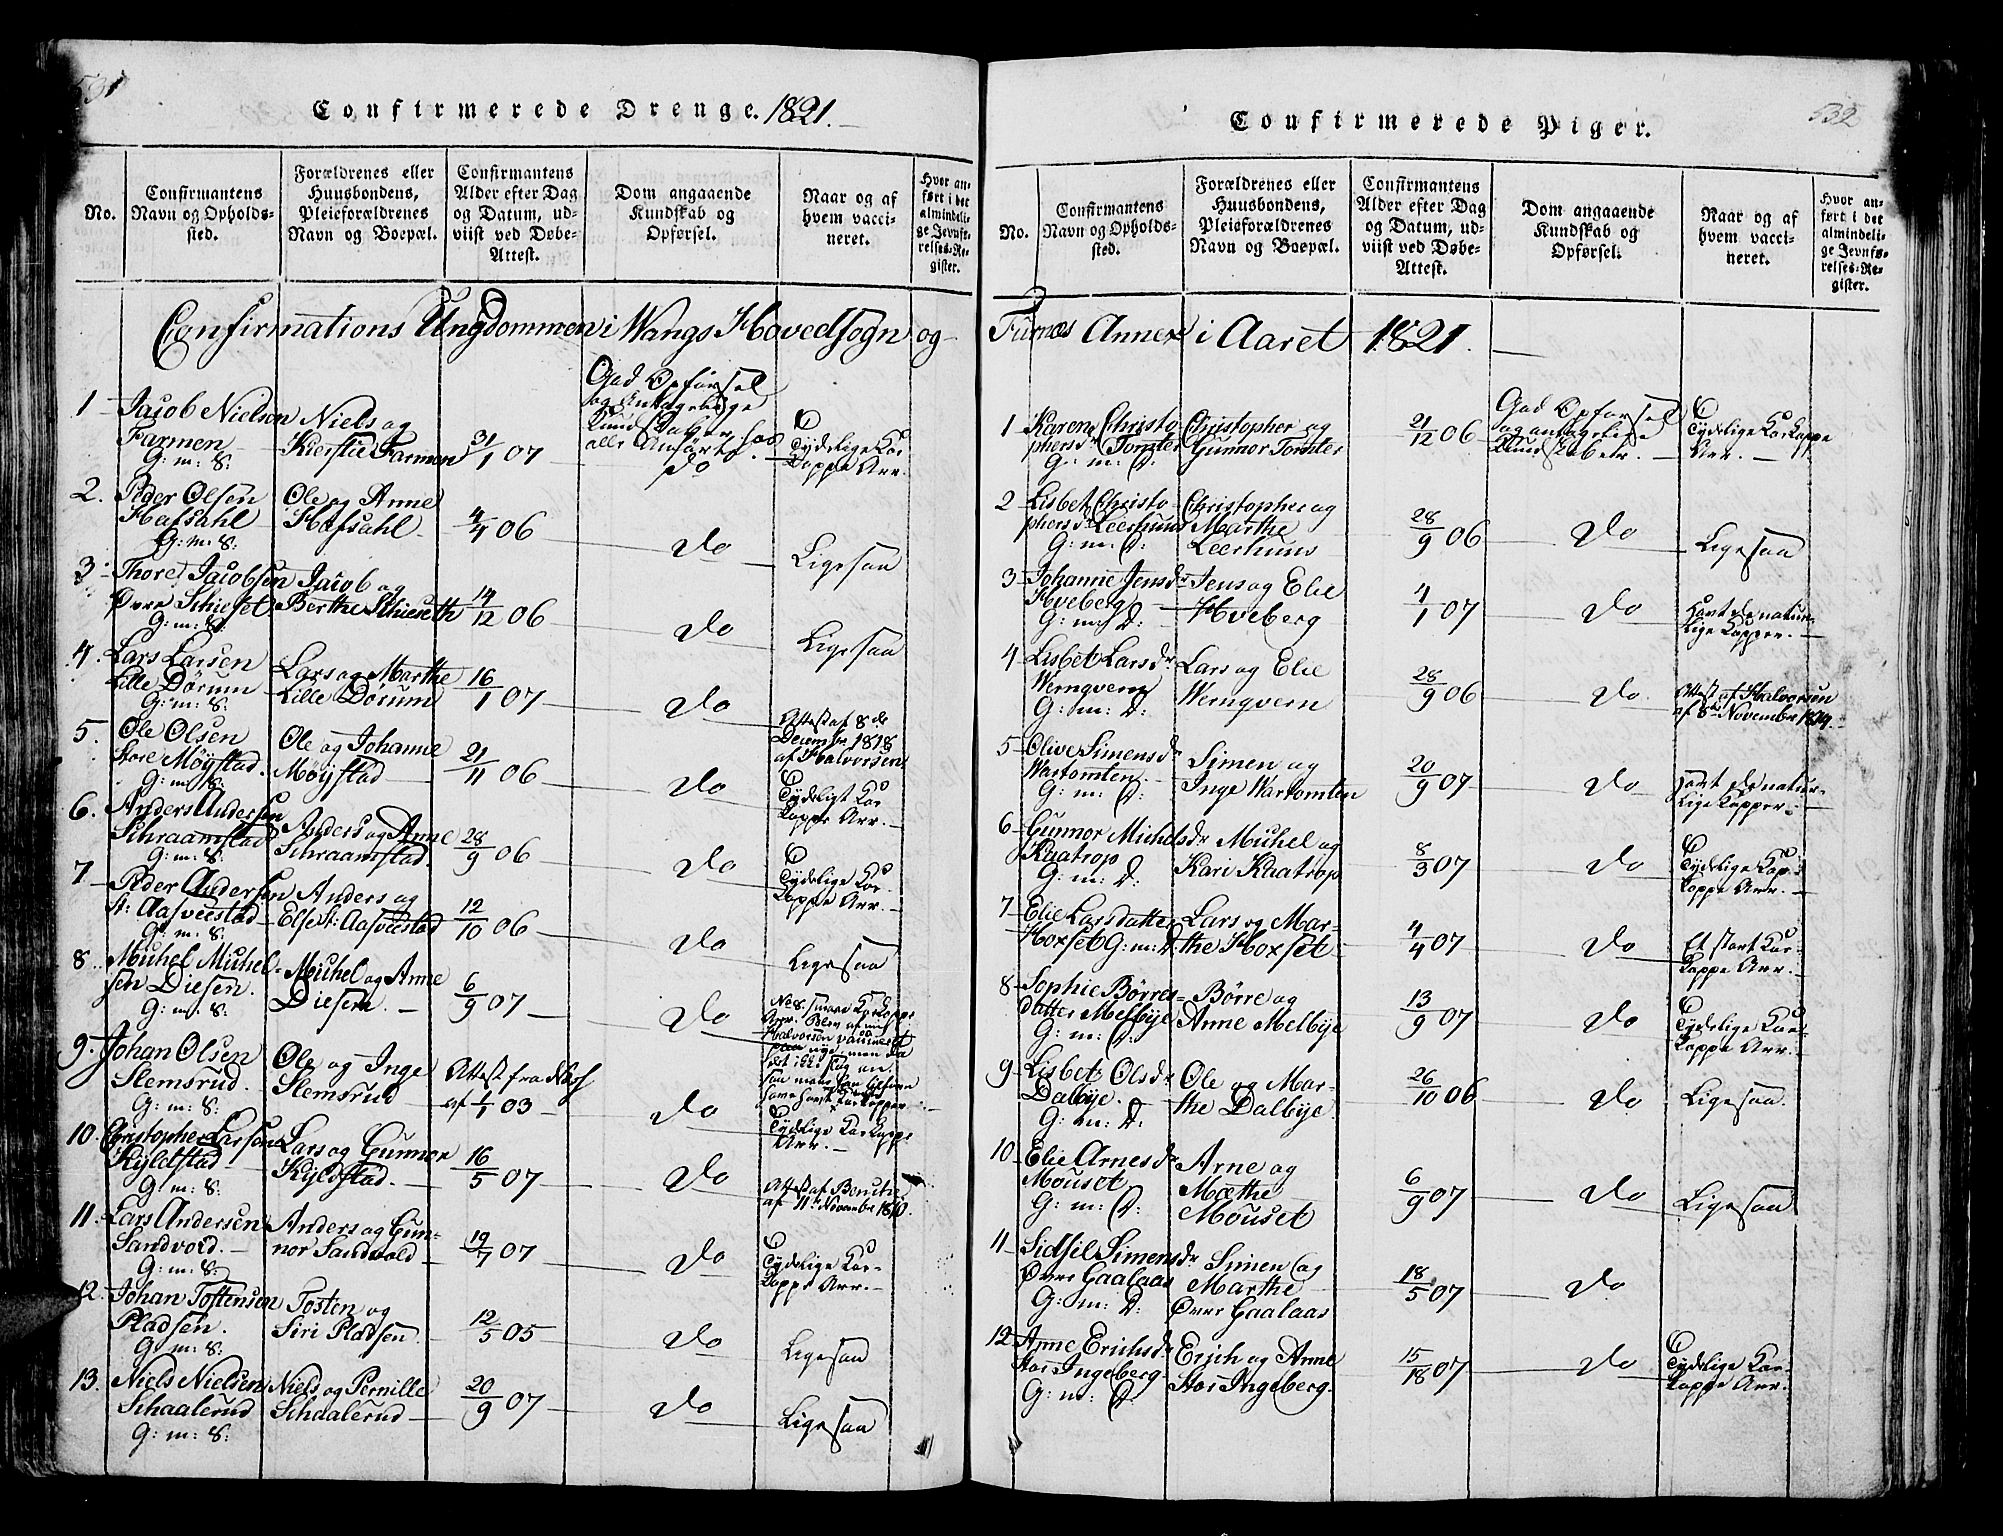 531
Confirmerede Drenge. 1821.
No.
Confirmantens
Navn og Opholds-
sted.
Forældrenes eller
Huusbondens,
Pleieforældrenes
Navn og Boepæl.
Confirmantens
Alder efter Dag
og Datum, ud-
viist ved Døbe-
Attest.
Dom angaaende
Kundskab og
Opførsel.
Naar og af
hvem vacci-
neret.
Hvor an-
ført i det
almindeli-
ge Jevnfø-
relses-Re-
gister.
Confirmations Ungdommen i Wangs Hovedsogn og
1 Jacob Nielsen
Farmen
G: m: S:
Niels og
Kierstie Farmen
31/1 07
God Opførsel
og Antagelige
Kundskaber
do
Tydelige Ko-
koppe Arr.
2. Peder Olsen
Hafsahl
G: m: S:
Ole og Anne
Hafsahl
4/4 06
do
Ligesaa
3 Thore Jacobsen
Øvre Schieset
G: m: S:
Jacob og
Berthe Schieseth
14/12 06
do
Ligesaa
4. Lars Larsen
Lille Dørum
G: m: S:
Lars og Marthe
Lille Dørum
16/1 07
do
Attest af 8de
Decembr 1818
af Halvorsen
5. Ole Olsen
Store Møystad
G: m: S:
Ole og Johanne
Møystad
21/11 06
do
Tydeligt Ko-
koppe Arr.
6. Anders Andersen
Schraamstad
G: m: S:
Anders og Anne
Schraamstad
28/9 06
do
Tydelige Ko-
koppe Arr.
7 Peder Andersen
St: Aasveestad
G: m: S:
Anders og
Else St: Aasveestad
12/10 06
do
Ligesaa
8 Michel Michel-
sen Diesen.
G: m: S:
Michel og Anne
Diesen.
6/9 07
do
9. Johan Olsen
Slemsrud.
G: m: S:
Ole og Inge
Slemsrud
Attest fra
af 1/1 03
do
Tydelige Kokoppe
Arr.
10. Christopher Larsen
Kyldstad
G: m: S:
Lars og Gunnor
Kyldstad.
16/5 07
do
Attest af
af 11te Novembr 1810.
11. Lars Andersen
Sandvold.
G: m: S:
Anders og Gun-
nor Sandvold
19/7 07
do
Tydelige Ko-
koppe Arr.
12. Johan Tostensen
Pladsen.
G: m: S:
Tosten og
Siri Pladsen
12/5 05
do
Ligesaa
13. Niels Nielsen
Schaalerud
G: m: S:
Niels og Pernille
Schaalerud
20/9 07
do
Ligesaa
532
Confirmerede Piger.
No.
Confirmantens
Navn og Opholds-
sted.
Forældrenes eller
Huusbondens,
Pleieforældrenes
Navn og Boepæl.
Confirmantens
Alder efter Dag
og Datum, ud-
viist ved Døbe-
Attest.
Dom angaaende
Kundskab og
Opførsel.
Naar og af
hvem vacci-
neret.
Hvor an-
ført i det
almindeli-
ge Jevnfø-
relses-Re-
gister.
Furnæs Annex i Aaret 1821.
1 Karen Christo
phersdr Tomter
G: m: D:
Christopher og
Gunnor Tomter
21/12 06
God Opførsel
og antagelige
Kundskaber.
Tydelige Kokoppe
Arr.
2 Lisbet Christo
phersdr Leerhuus
G: m: D:
Christopher og
Marthe
Leerhuus
28/9 06
do
Ligesaa
3 Johanne Jensdr
Hveberg
G: m: D:
Jens og Elie
Hveberg
4/1 07
do
Havt de natur-
lige Kopper.
4 Lisbet Larsdr
Wernqvern
G: m: D:
Lars og Elie
Wernqvern
28/9 06
do
Attest af Halvorsen
af 8de November
5 Olive Simensdr
Wartomten.
G: m: D:
Simen og
Inge Wartomten
20/9 07
do
Havt de natur-
lige Kopper.
6 Gunnor Michelsdr
Kaatrop
G: m: D:
Michel og
Kari Kaatrop
8/3 07
do
Tydelige Ko-
koppe Arr.
7 Elie Larsdatter
Hoxset G: m: D:
Lars og Mar-
the Hoxset
4/4 07
do
Et stort Ko-
koppe Arr.
8 Sophie Børres-
datter Melbye
G: m: D:
Børre og
Anne Melbye
13/9 07
do
Tydelige Ko-
koppe Arr.
9 Lisbet Olsdr
Dalbye.
G: m: D:
Ole og Mar-
the Dalbye.
26/10 06
do
Ligesaa.
10 Elie Arnesdr
Mouset
G: m: D:
Arne og
Mæthe
Mouset
6/9 07
do
Ligesaa
11 Sidsil Simensdr
Øvre Gaalaas
G: m: D:
Simen og
Marthe
Øvre Gaalaas
18/5 07
do
12 Anne Erichsdr
Stor Ingeberg
G: m: D:
Erich og Anne
Stor Ingeberg
15/18 07
do
Tydelige Ko-
koppe Arr.